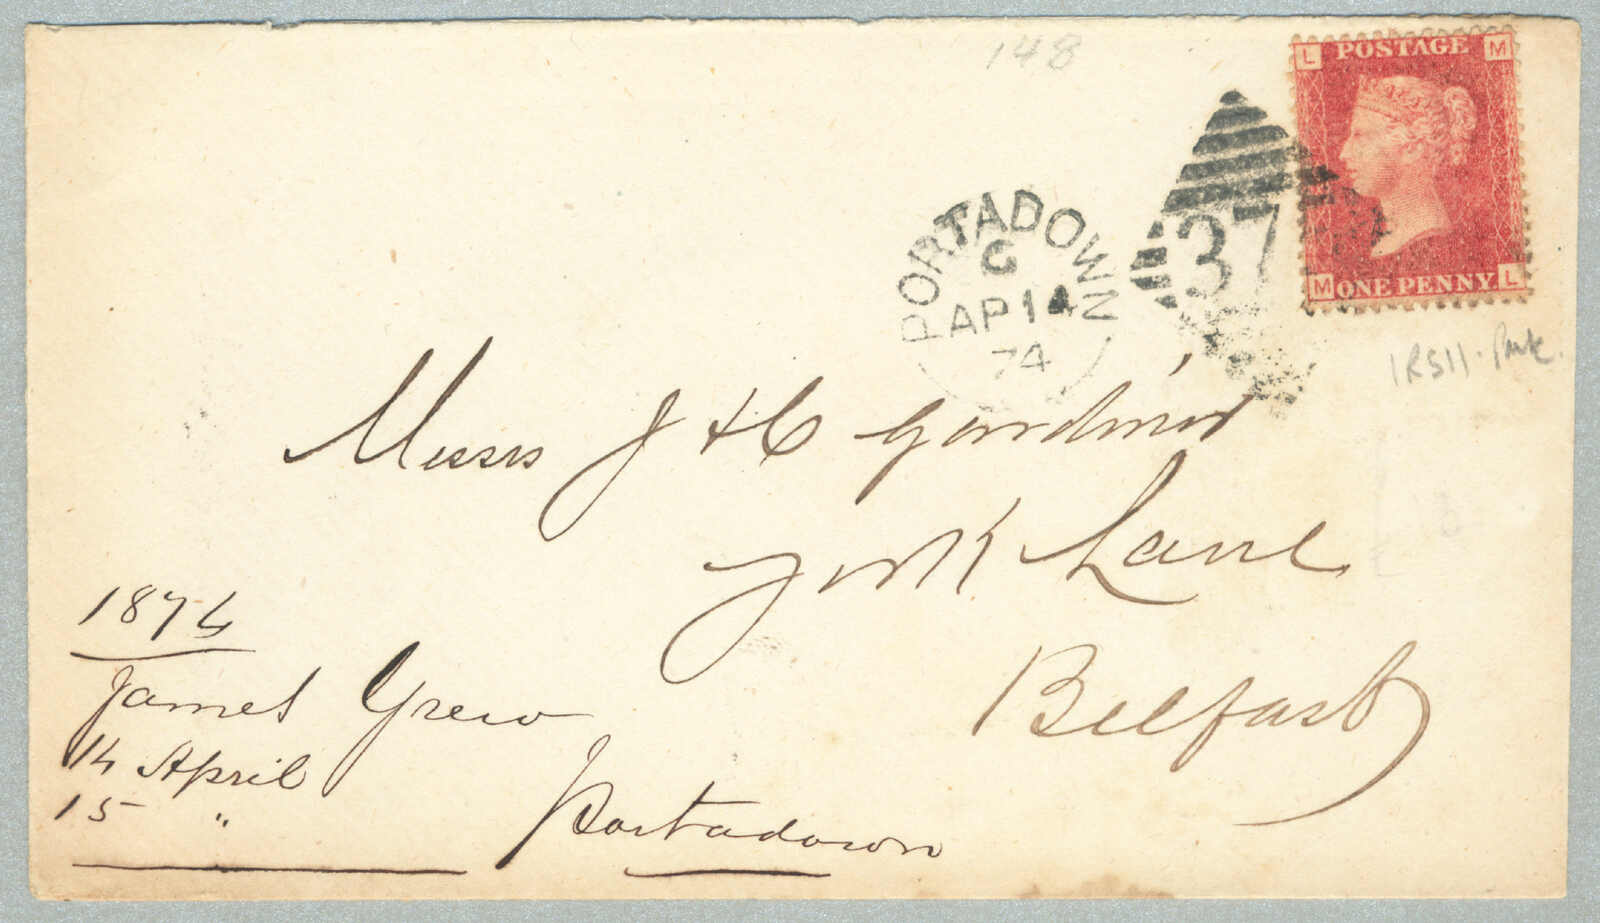 148
L POSTAGE M
M ONE PENNY L
PORTADOWN
C
AP 14
74
37
Messrs J & C Gardner
York Lane
Belfast
1874
James Grew
14 April
15 "
Portadown